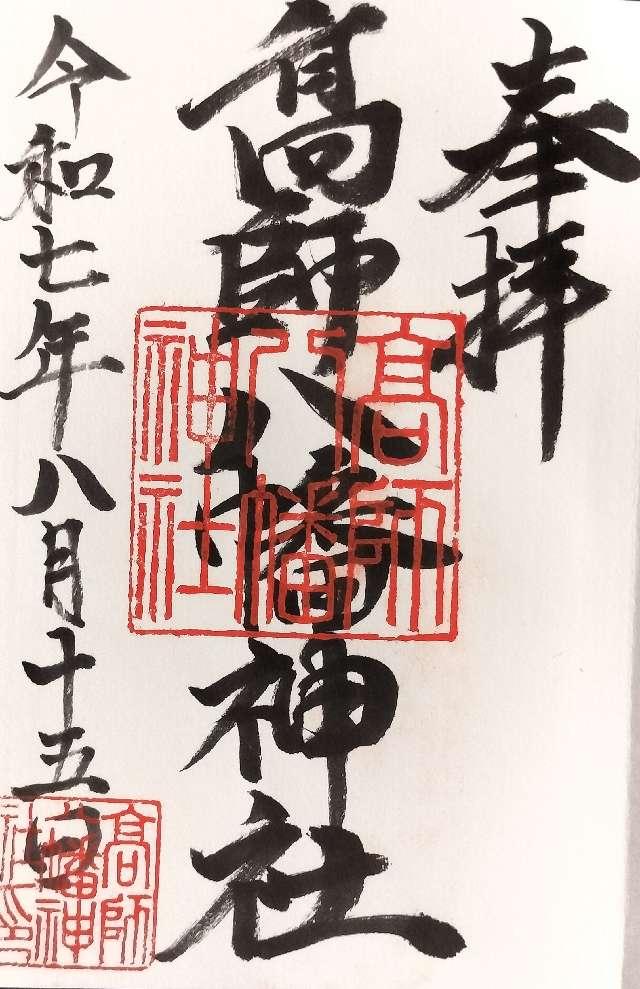 奉拝
髙師八幡神社
令和七年八月十五日
髙師
八幡
神社
髙師
八幡神
社印